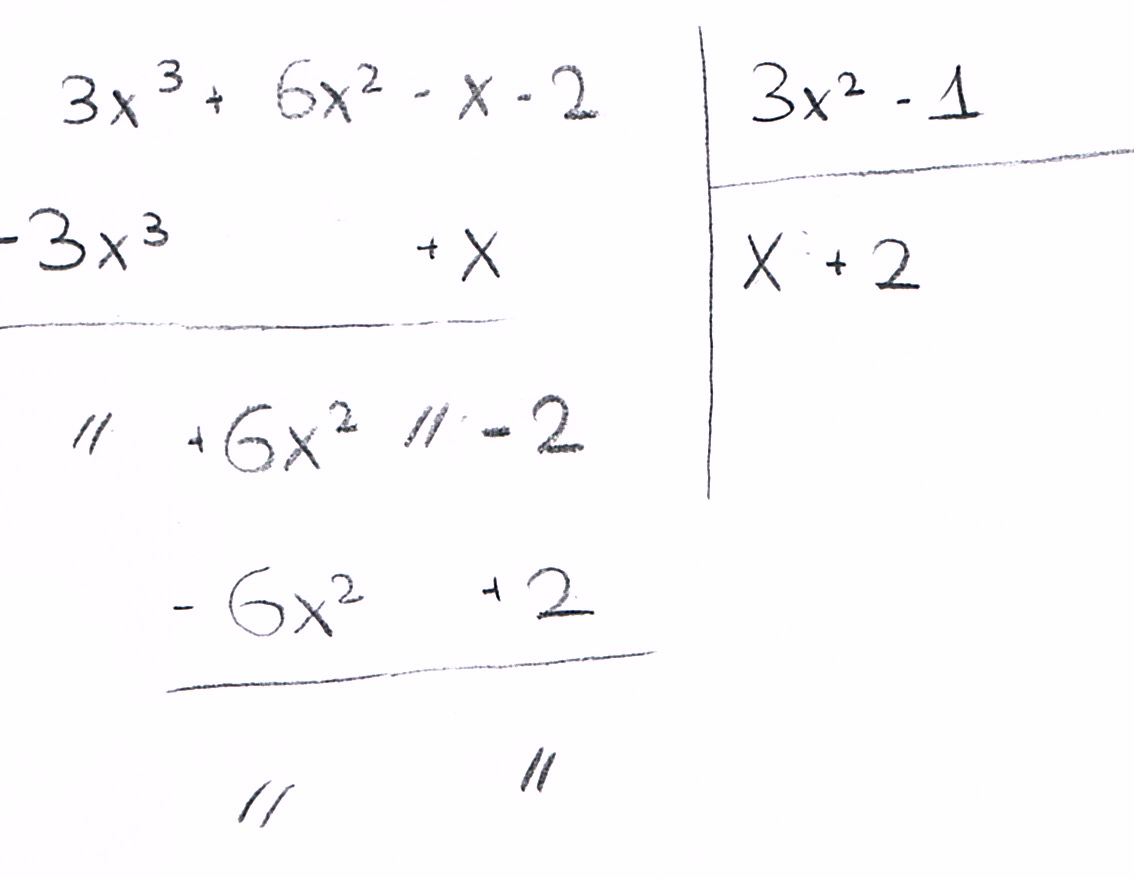 3x³ + 6x² - x - 2 | 3x² - 1
-3x³ + x | x + 2
// +6x² // - 2
- 6x² + 2
// //